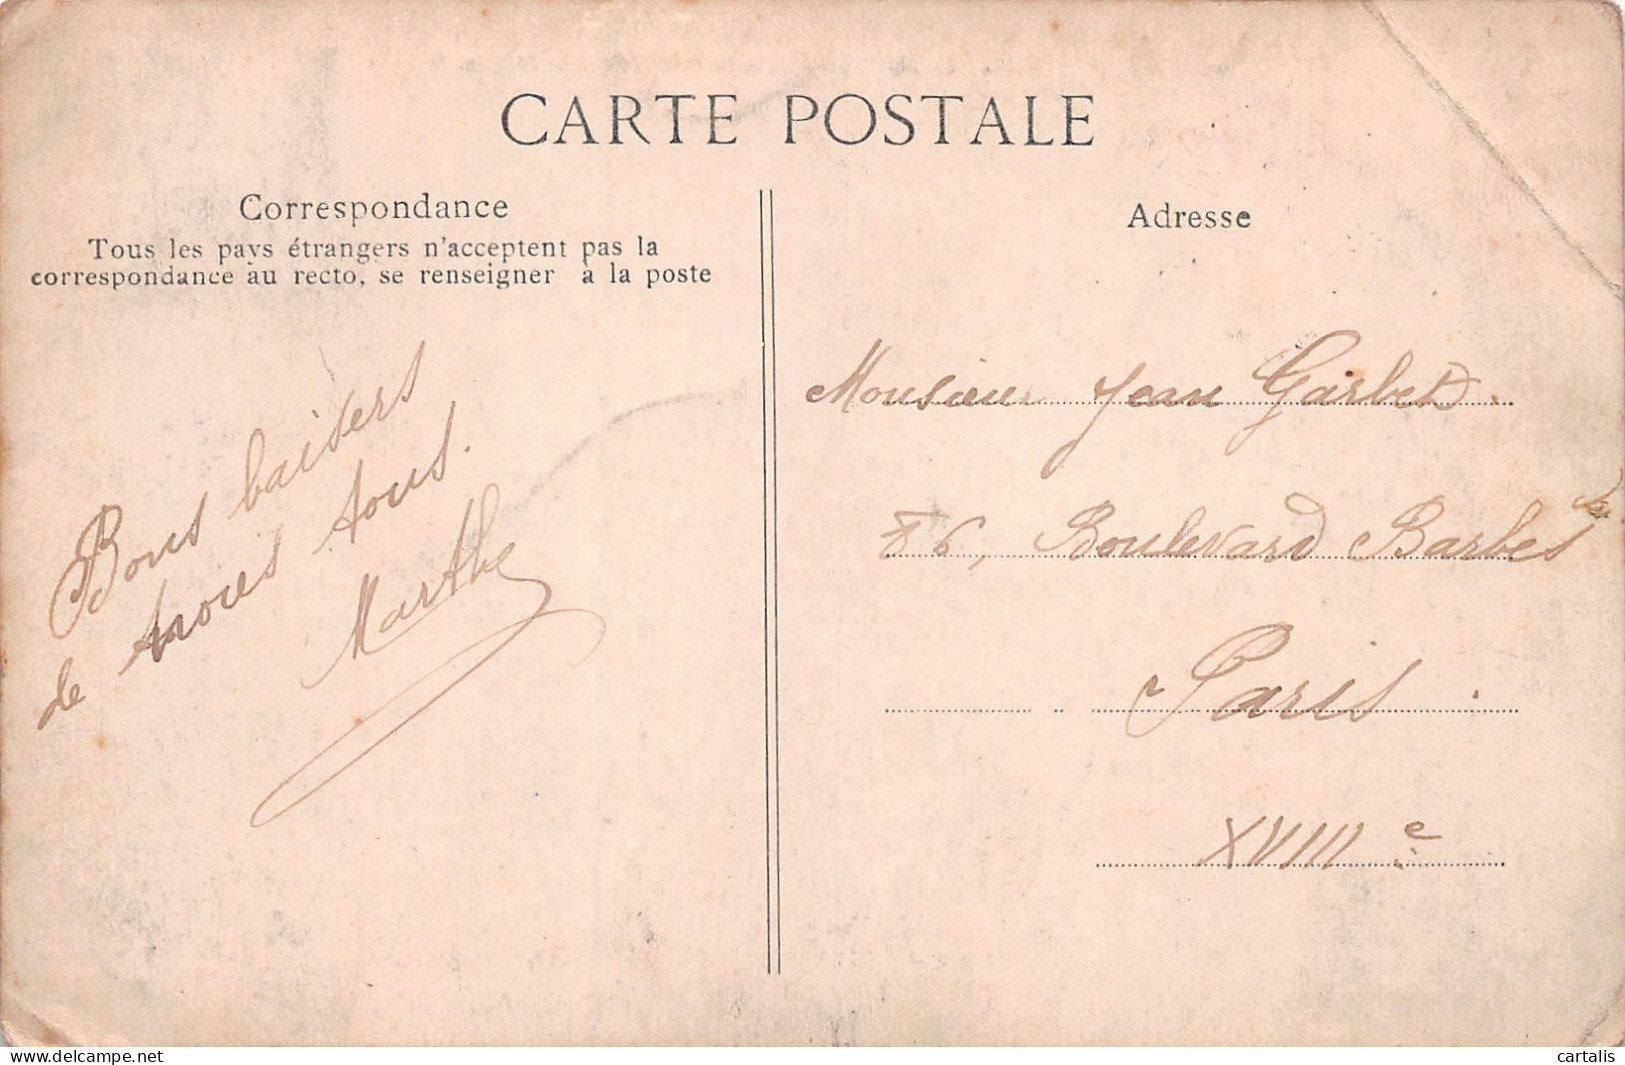 CARTE POSTALE
Correspondance
Tous les pays étrangers n'acceptent pas la
correspondance au recto, se renseigner à la poste
Bons baisers
de nous tous.
Marthe
Adresse
Monsieur Jean Garbet
86, Boulevard Barbès
Paris.
XVIIIe
cartalis
www.delcampe.net